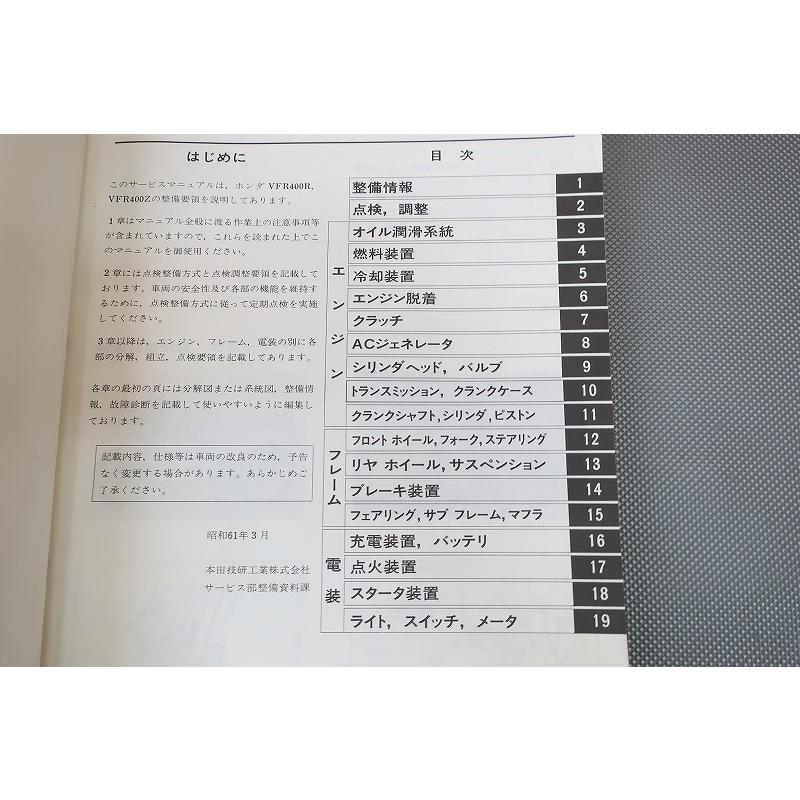 はじめに
このサービスマニュアルは，ホンダ VFR400R,
VFR400Zの整備要領を説明してあります。
1章はマニュアル全般に渡る作業上の注意事項等
が含まれていますので，これらを読まれた上でこ
のマニュアルを御使用ください。
2章には点検整備方式と点検調整要領を記載して
おります。車両の安全性及び各部の機能を維持す
るために，点検整備方式に従って定期点検を実施
してください。
3章以降は，エンジン，フレーム，電装の別に各
部の分解，組立，点検要領を記載してあります。
各章の最初の頁には分解図または系統図，整備情
報，故障診断を記載して使いやすいように編集し
ております。
記載内容，仕様等は車両の改良のため，予告
なく変更する場合があります。あらかじめご
了承ください。
昭和61年3月
本田技研工業株式会社
サービス部整備資料課
目 次
整備情報 1
点検，調整 2
エンジン
オイル潤滑系統 3
燃料装置 4
冷却装置 5
エンジン脱着 6
クラッチ 7
ACジェネレータ 8
シリンダヘッド，バルブ 9
トランスミッション，クランクケース 10
クランクシャフト,シリンダ,ピストン 11
フレーム
フロント ホイール,フォーク,ステアリング 12
リヤ ホイール,サスペンション 13
ブレーキ装置 14
フェアリング,サブ フレーム,マフラ 15
電装
充電装置，バッテリ 16
点火装置 17
スタータ装置 18
ライト，スイッチ，メータ 19